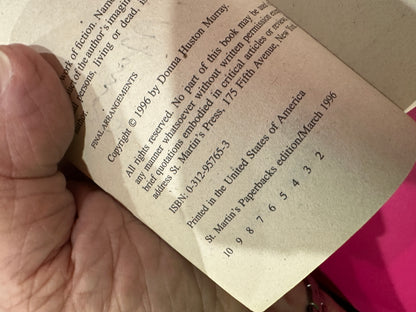 work of fiction. Name
of the author's imagin
persons, living or dead, is
FINAL ARRANGEMENTS
Copyright © 1996 by Donna Huston Murray.
All rights reserved. No part of this book may be used
any manner whatsoever without written permission
brief quotations embodied in critical articles or review
address St. Martin's Press, 175 Fifth Avenue, New York
ISBN: 0-312-95765-3
Printed in the United States of America
St. Martin's Paperbacks edition/March 1996
10 9 8 7 6 5 4 3 2